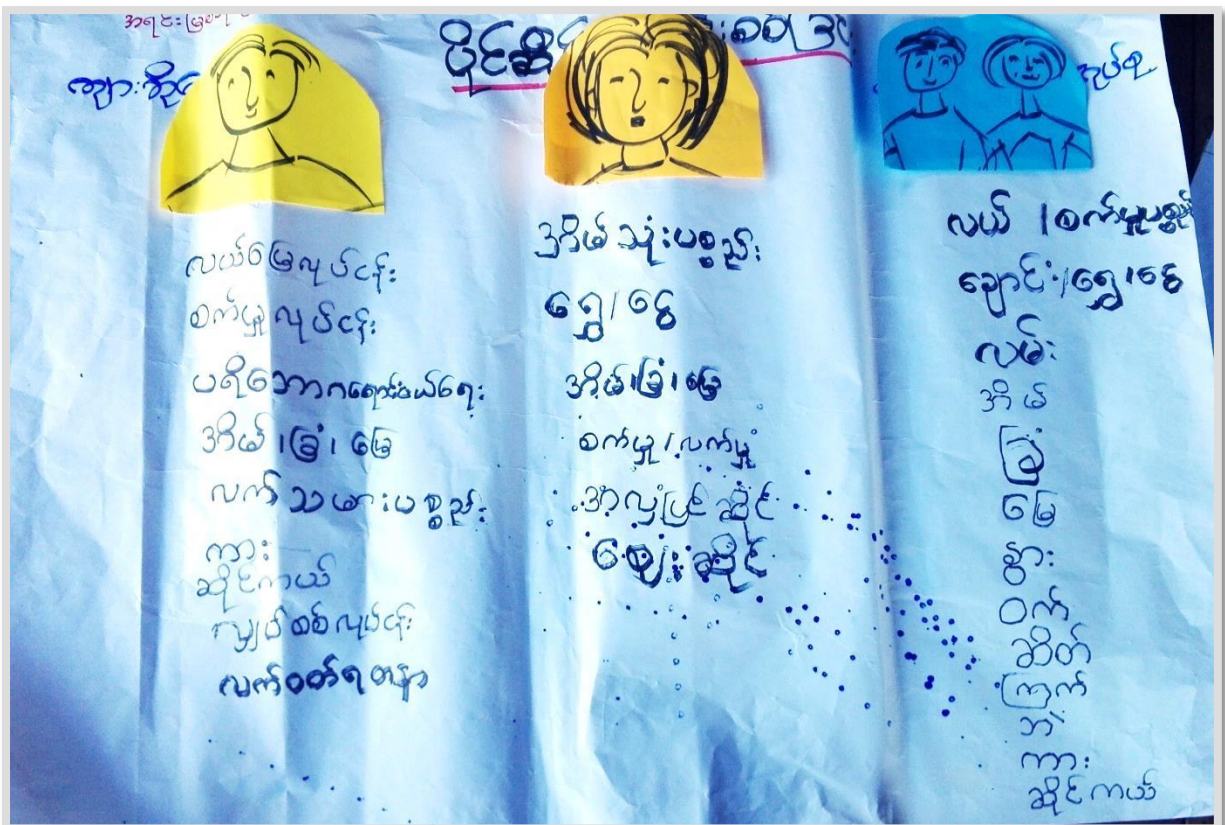 အရင်းအမြစ်
ပိုင်ဆို
ကျား
လယ်မြေလုပ်ငန်း
စက်မှုလုပ်ငန်း
ပရိဘောဂရောင်းဝယ်ရေး
အိမ် ၊ခြံ ၊ မြေ
လက်သမားပစ္စည်း
ကား
ဆိုင်ကယ်
လျှပ်စစ်လုပ်ငန်း
လက်ဝတ်ရတနာ
အိမ်သုံးပစ္စည်း
ရွှေ ၊ ငွေ
အိမ် ၊ခြံ ၊ မြေ
စက်မှု ၊ လက်မှု
အလှပြင်ဆိုင်
ဈေးဆိုင်
အုပ်စု
လယ် ၊ စက်မှုပစ္စည်း
ချောင်း ၊ ရွှေ ၊ ငွေ
လမ်း
အိမ်
ခြံ
မြေ
နွား
ဝက်
ဆိတ်
ကြက်
ဘဲ
ကား
ဆိုင်ကယ်